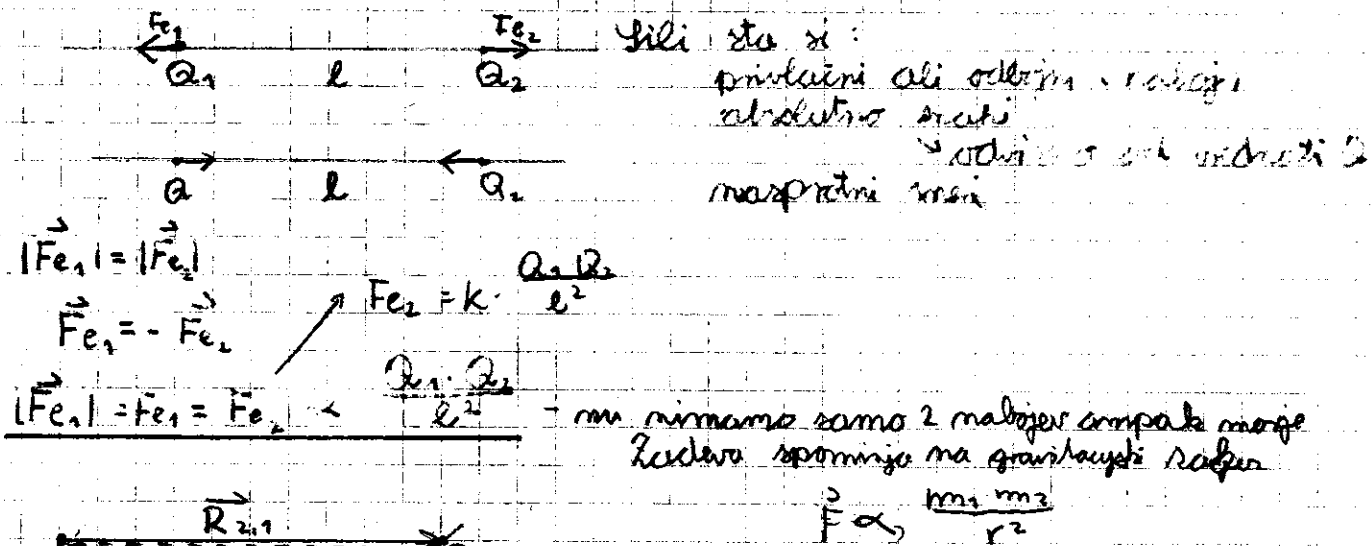 Fe₁ Fe₂ Sili sta si:
Q₁ l Q₂ privlačni ali odbojni
absolutno enaki
Q l Q₂ nasprotni smeri
|F⃗e₁| = |F⃗e₂|
F⃗e₁ = - F⃗e₂
Fe₂ = k · Q₁ Q₂ / l²
|F⃗e₁| = Fe₁ = Fe₂ Q₁ · Q₂ / l² - mi nimamo samo 2 nabojev ampak morje
Zadeva spominja na gravitacijski zakon
R⃗₂,₁
F⃗ ∝ m₁ m₂ / r²